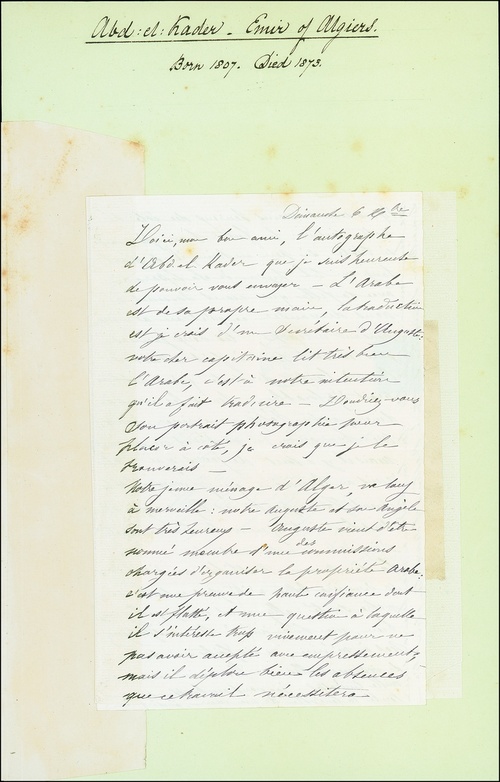 Abd: el: Kader - Emir of Algiers.
Born 1807. Died 1873.
Dimanche 6 9bre
Voici, mon bon ami, l'autographe
d'Abd el Kader que je suis heureuse
de pouvoir vous envoyer - L'Arabe
est de sa propre main, la traduction
est je crois d'un Secrétaire d'Auguste:
votre cher capitaine lit très bien
l'Arabe, c'est à notre intention
qu'il a fait traduire - Voudriez-vous
son portrait photographié pour
placer à côté, je crois que je le
trouverais -
Notre jeune ménage d'Alger, va tout
à merveille: notre Auguste et son Angèle
sont très heureux - Auguste vient d'être
nommé membre d'une des commissions
chargées d'organiser la propriété Arabe:
c'est une preuve de haute confiance dont
il est flatté, et une question à laquelle
il s'intéresse trop vivement pour ne
pas avoir accepté avec empressement,
mais il déplore bien les absences
que ce travail nécessitera